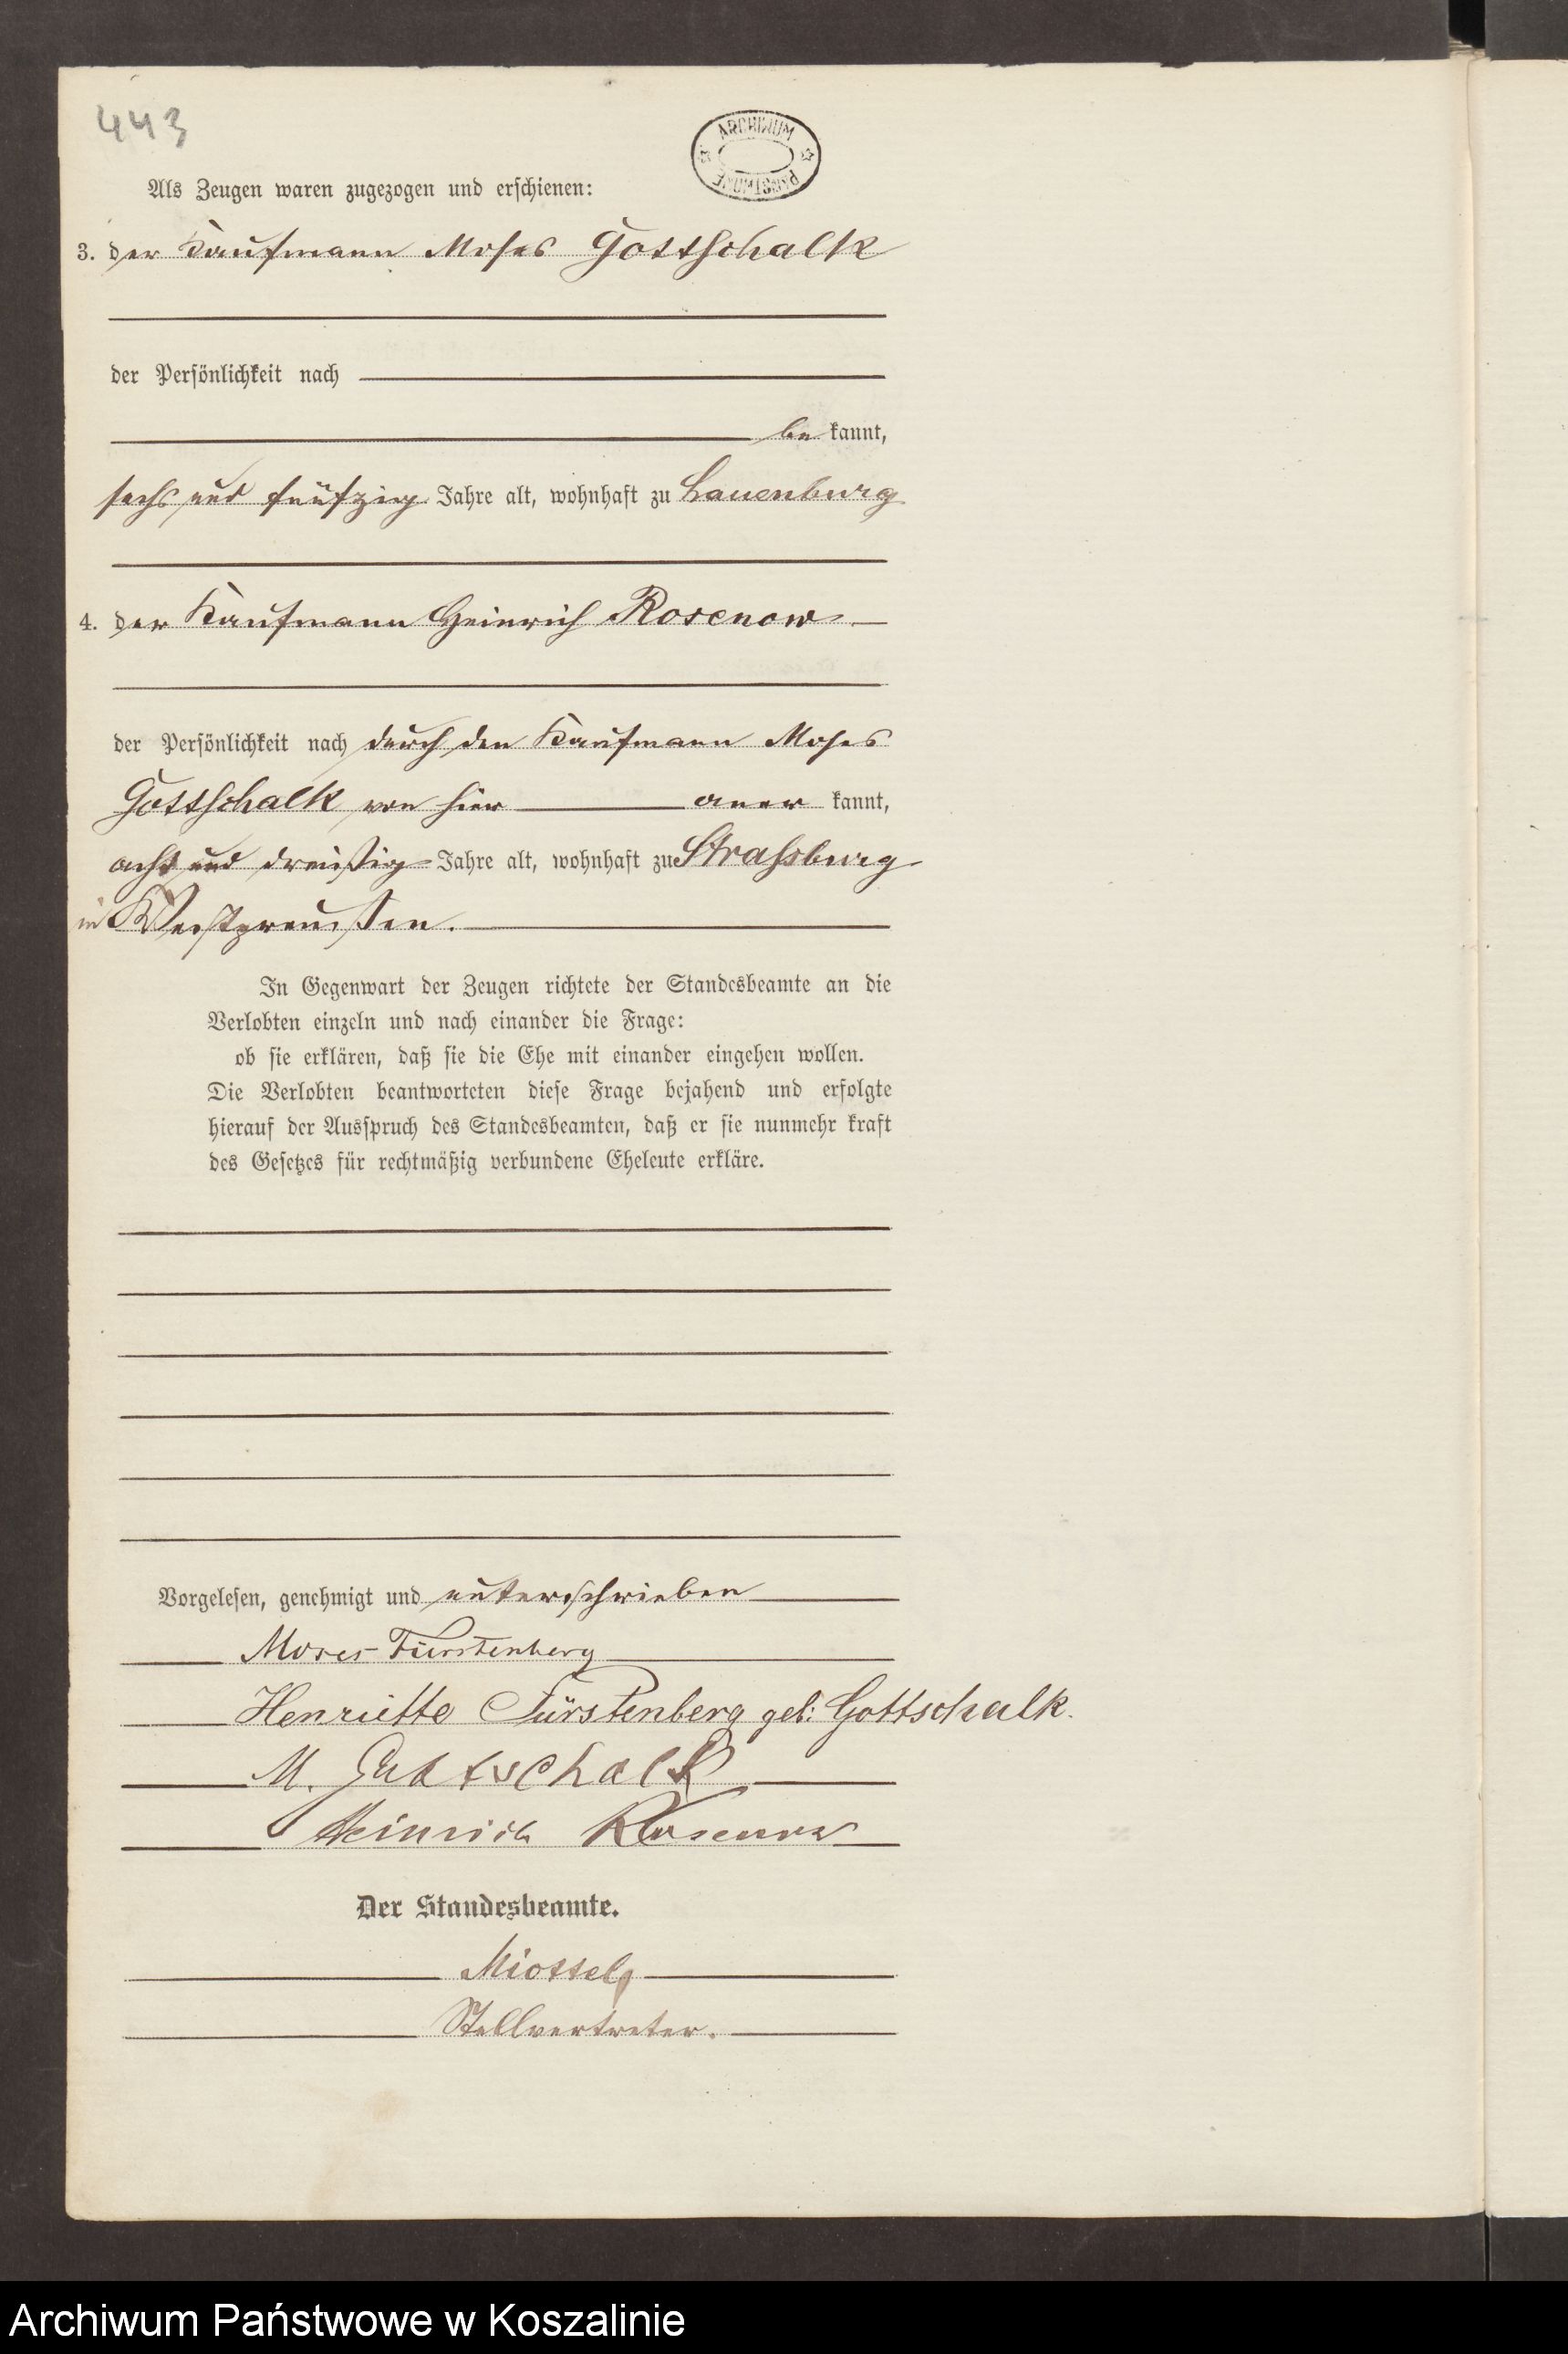 443
ARCHIWUM PAŃSTWOWE
Als Zeugen waren zugezogen und erschienen:
3. der Kaufmann Moses Gottschalk
der Persönlichkeit nach
be kannt,
sechs und fünfzig Jahre alt, wohnhaft zu Lauenburg
4. der Kaufmann Heinrich Rosenow
der Persönlichkeit nach durch den Kaufmann Moses
Gottschalk von hier aner kannt,
acht und dreißig Jahre alt, wohnhaft zu Strassburg
in Westpreußen.
In Gegenwart der Zeugen richtete der Standesbeamte an die
Verlobten einzeln und nach einander die Frage:
ob sie erklären, daß sie die Ehe mit einander eingehen wollen.
Die Verlobten beantworteten diese Frage bejahend und erfolgte
hierauf der Ausspruch des Standesbeamten, daß er sie nunmehr kraft
des Gesetzes für rechtmäßig verbundene Eheleute erkläre.
Vorgelesen, genehmigt und unterschrieben
Moses Fürstenberg
Henriette Fürstenberg geb: Gottschalk.
M. Gottschalk
Heinrich Rosenow
Der Standesbeamte.
Stellvertreter.
Archiwum Państwowe w Koszalinie